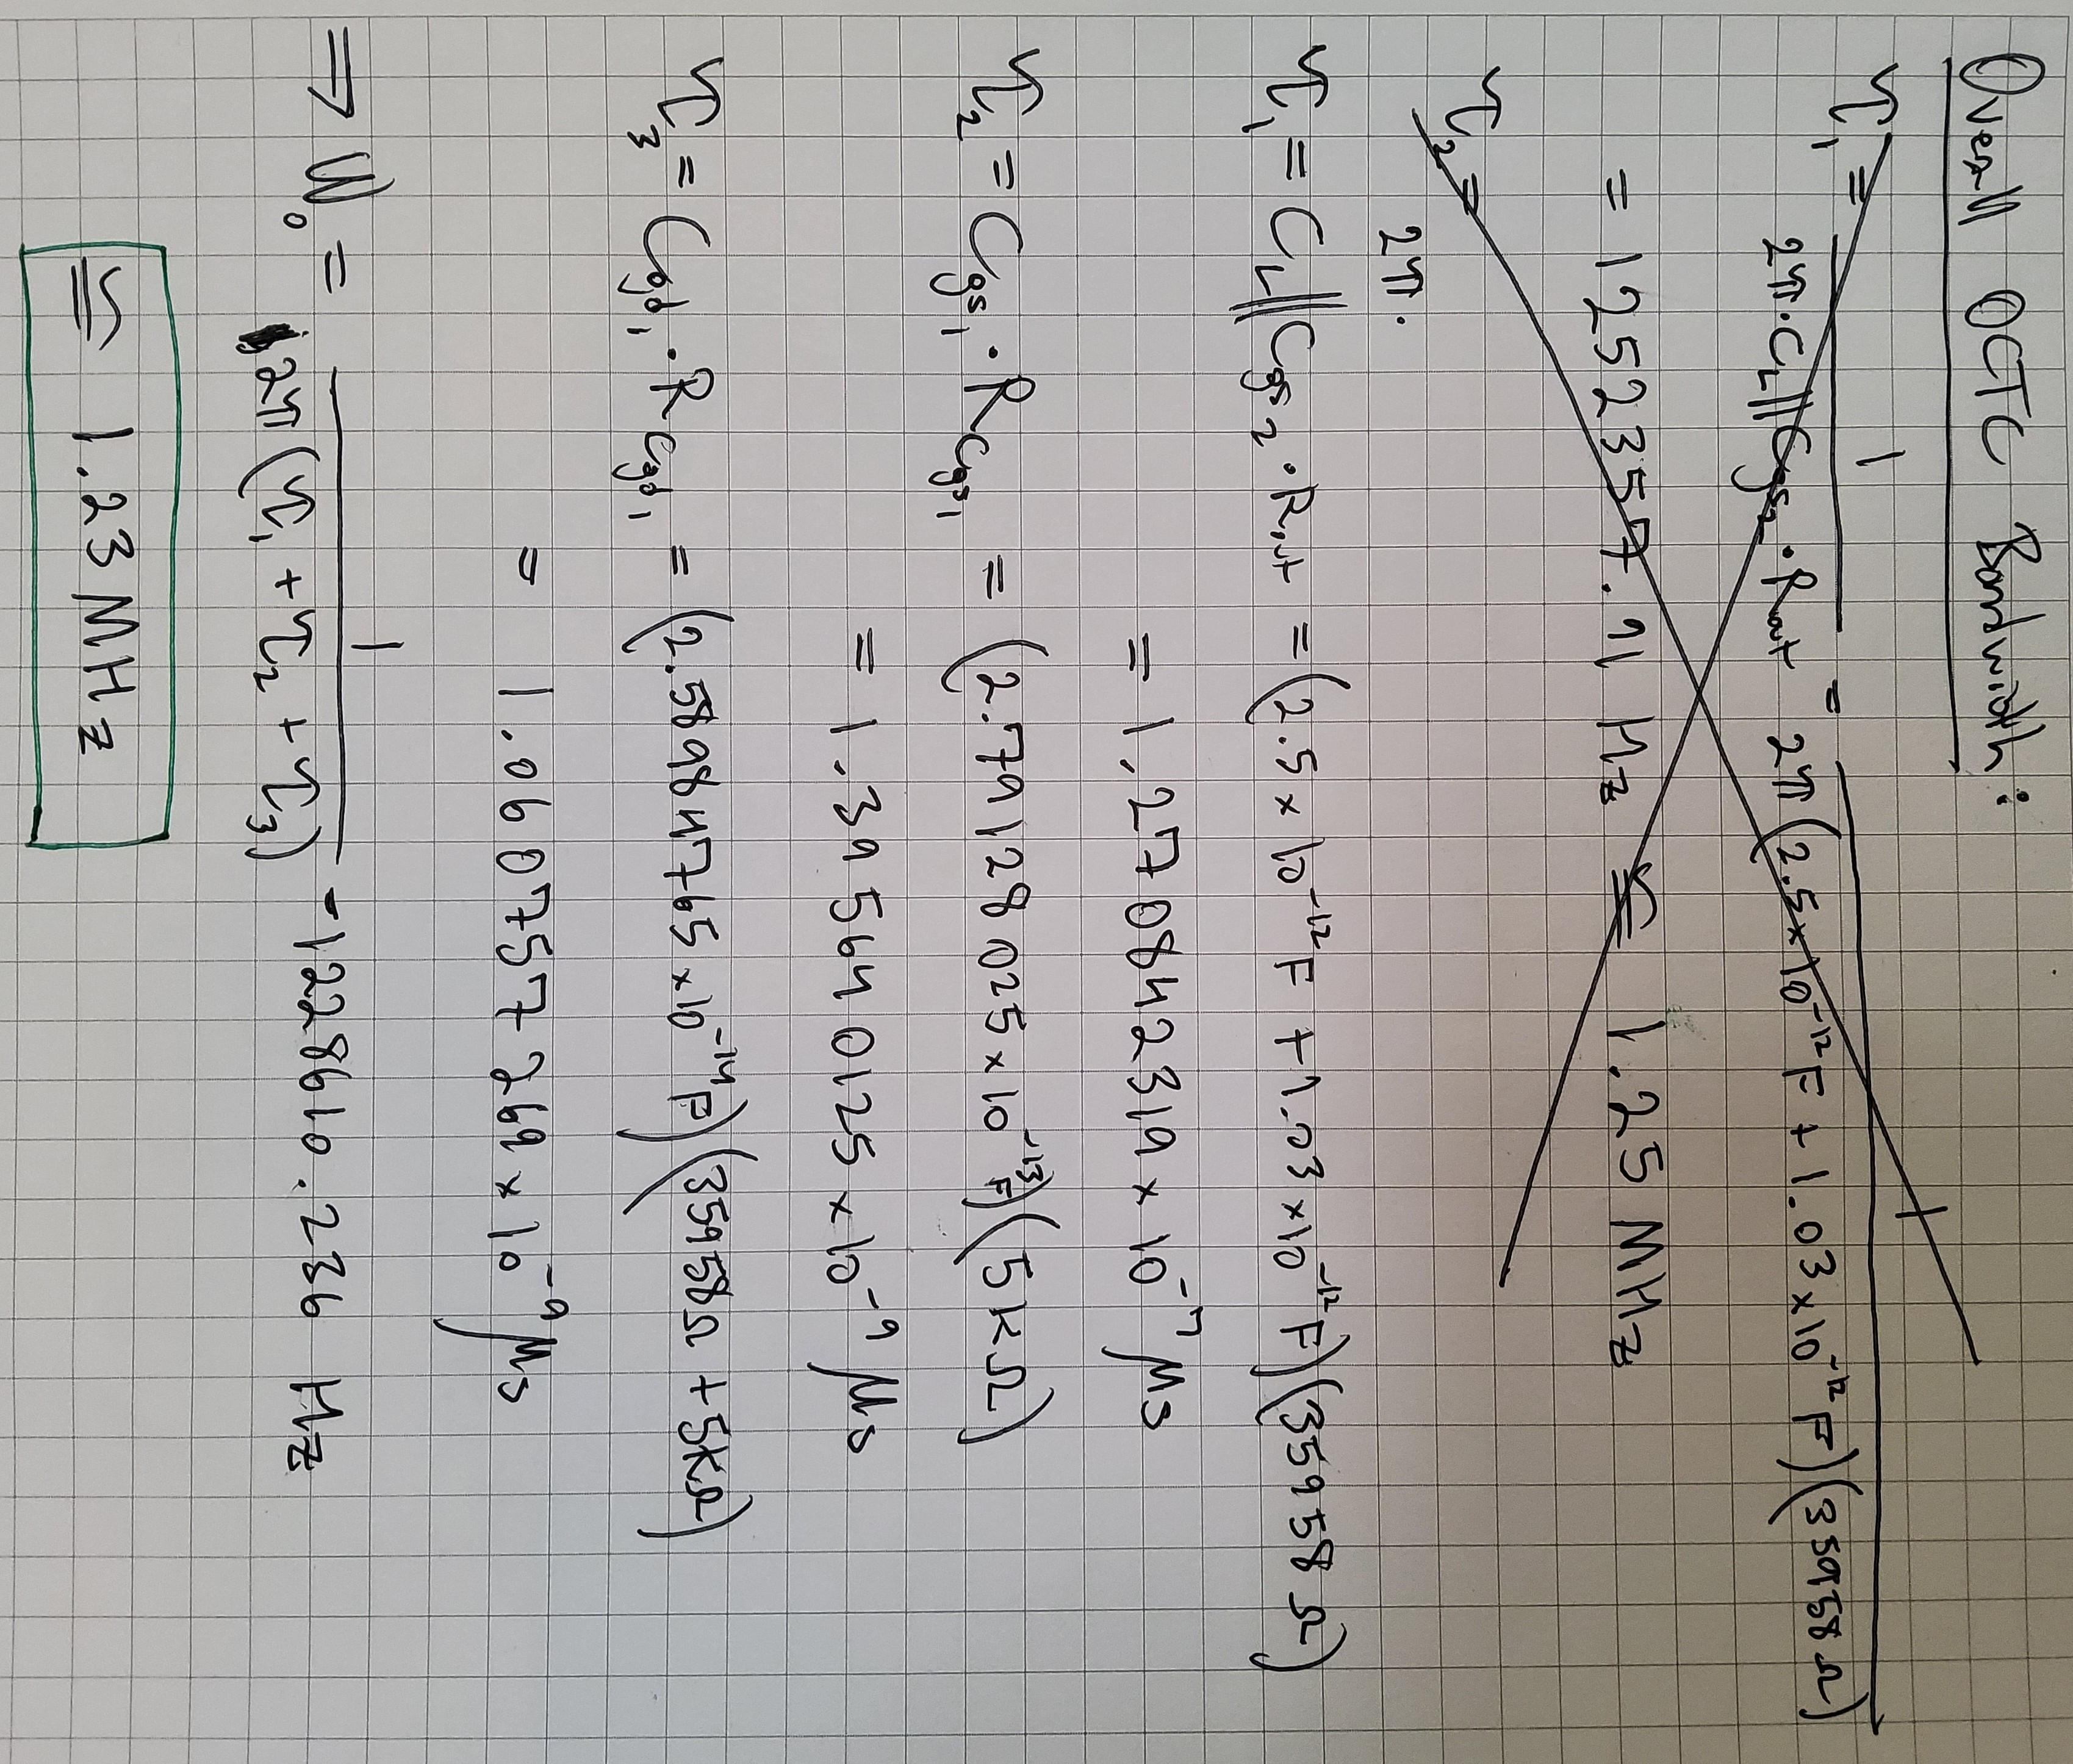 Overall OCTC Bandwidth:
τ₁ = 1 / (2π·C_L||C_gs₂·R_out) = 1 / (2π(2.5×10⁻¹²F + 1.03×10⁻¹²F)(35958Ω))
= 1252357.91 Hz ≌ 1.25 MHz
τ₂ =
2π·
τ₁ = C_L||C_gs₂·R_out = (2.5×10⁻¹²F + 1.03×10⁻¹²F)(35958Ω)
= 1.270842319×10⁻⁷ μs
τ₂ = C_gs₁·R_Cgs₁ = (2.79128025×10⁻¹³F)(5kΩ)
= 1.395640125×10⁻⁹ μs
τ₃ = C_gd₁·R_Cgd₁ = (2.58984765×10⁻¹⁴F)(35958Ω + 5kΩ)
= 1.060757269×10⁻⁹ μs
⇒ W₀ = 1 / (2π(τ₁ + τ₂ + τ₃)) - 1228610.236 Hz
≌ 1.23 MHz